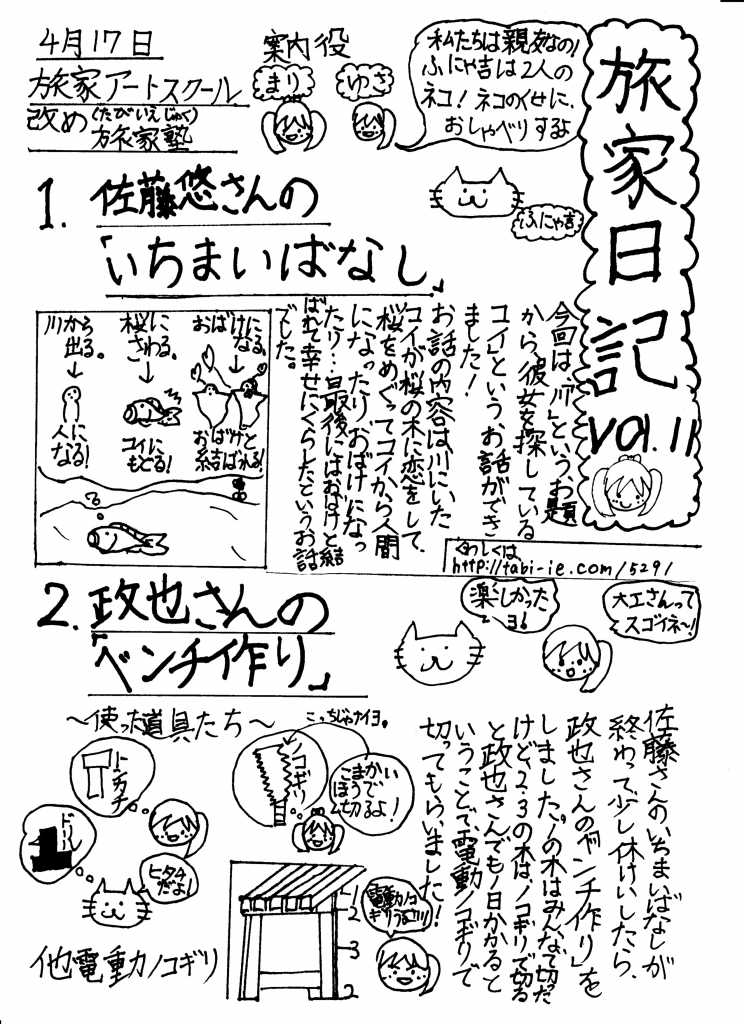 旅家日記
Vol.11
4月17日
旅家アートスクール
改め(たびいえじゅく)
旅家塾
案内役
まり
ゆさ
私たちは親友なの!
ふにゃ吉は2人の
ネコ!ネコのくせに、
おしゃべりするよ
ふにゃ吉
1.佐藤悠さんの
「いちまいばなし」
今回は「川」という、お題
から、「彼女を探している
コイ」という、お話ができ
ました!
お話の内容は、川にいた
コイが、桜の木に恋をして、
桜をめぐってコイから人間
になったり、おばけになっ
たり…最後にはおばけと結
ばれて幸せにくらしたというお話
でした。
川から
出る。
人に
なる!
桜に
さわる。
コイに
もどる!
おばけに
なる。
おばけと
結ばれる!
くわしくは、
http://tabi-ie.com/5291
2.政也さんの
「ベンチ作り」
楽しかった
ヨ!
大工さんって
スゴイネ~!
佐藤さんのいちまいばなしが
終わって少し休けいしたら、
政也さんの「ベンチ作り」を
しました。1の木はみんなで切った
けど、2、3の木はノコギリで切る
と政也さんでも1日かかると
いうことで、電動ノコギリで
切ってもらいました!
~使った道具たち~
トンカチ
ドリル
ヒタチ
だよ!
ノコギリ
こっちじゃナイヨ。
こまかい
ほうで
切るよ!
他電動ノコギリ
電動ノコ
ギリうるサイ!
1
2
3
2